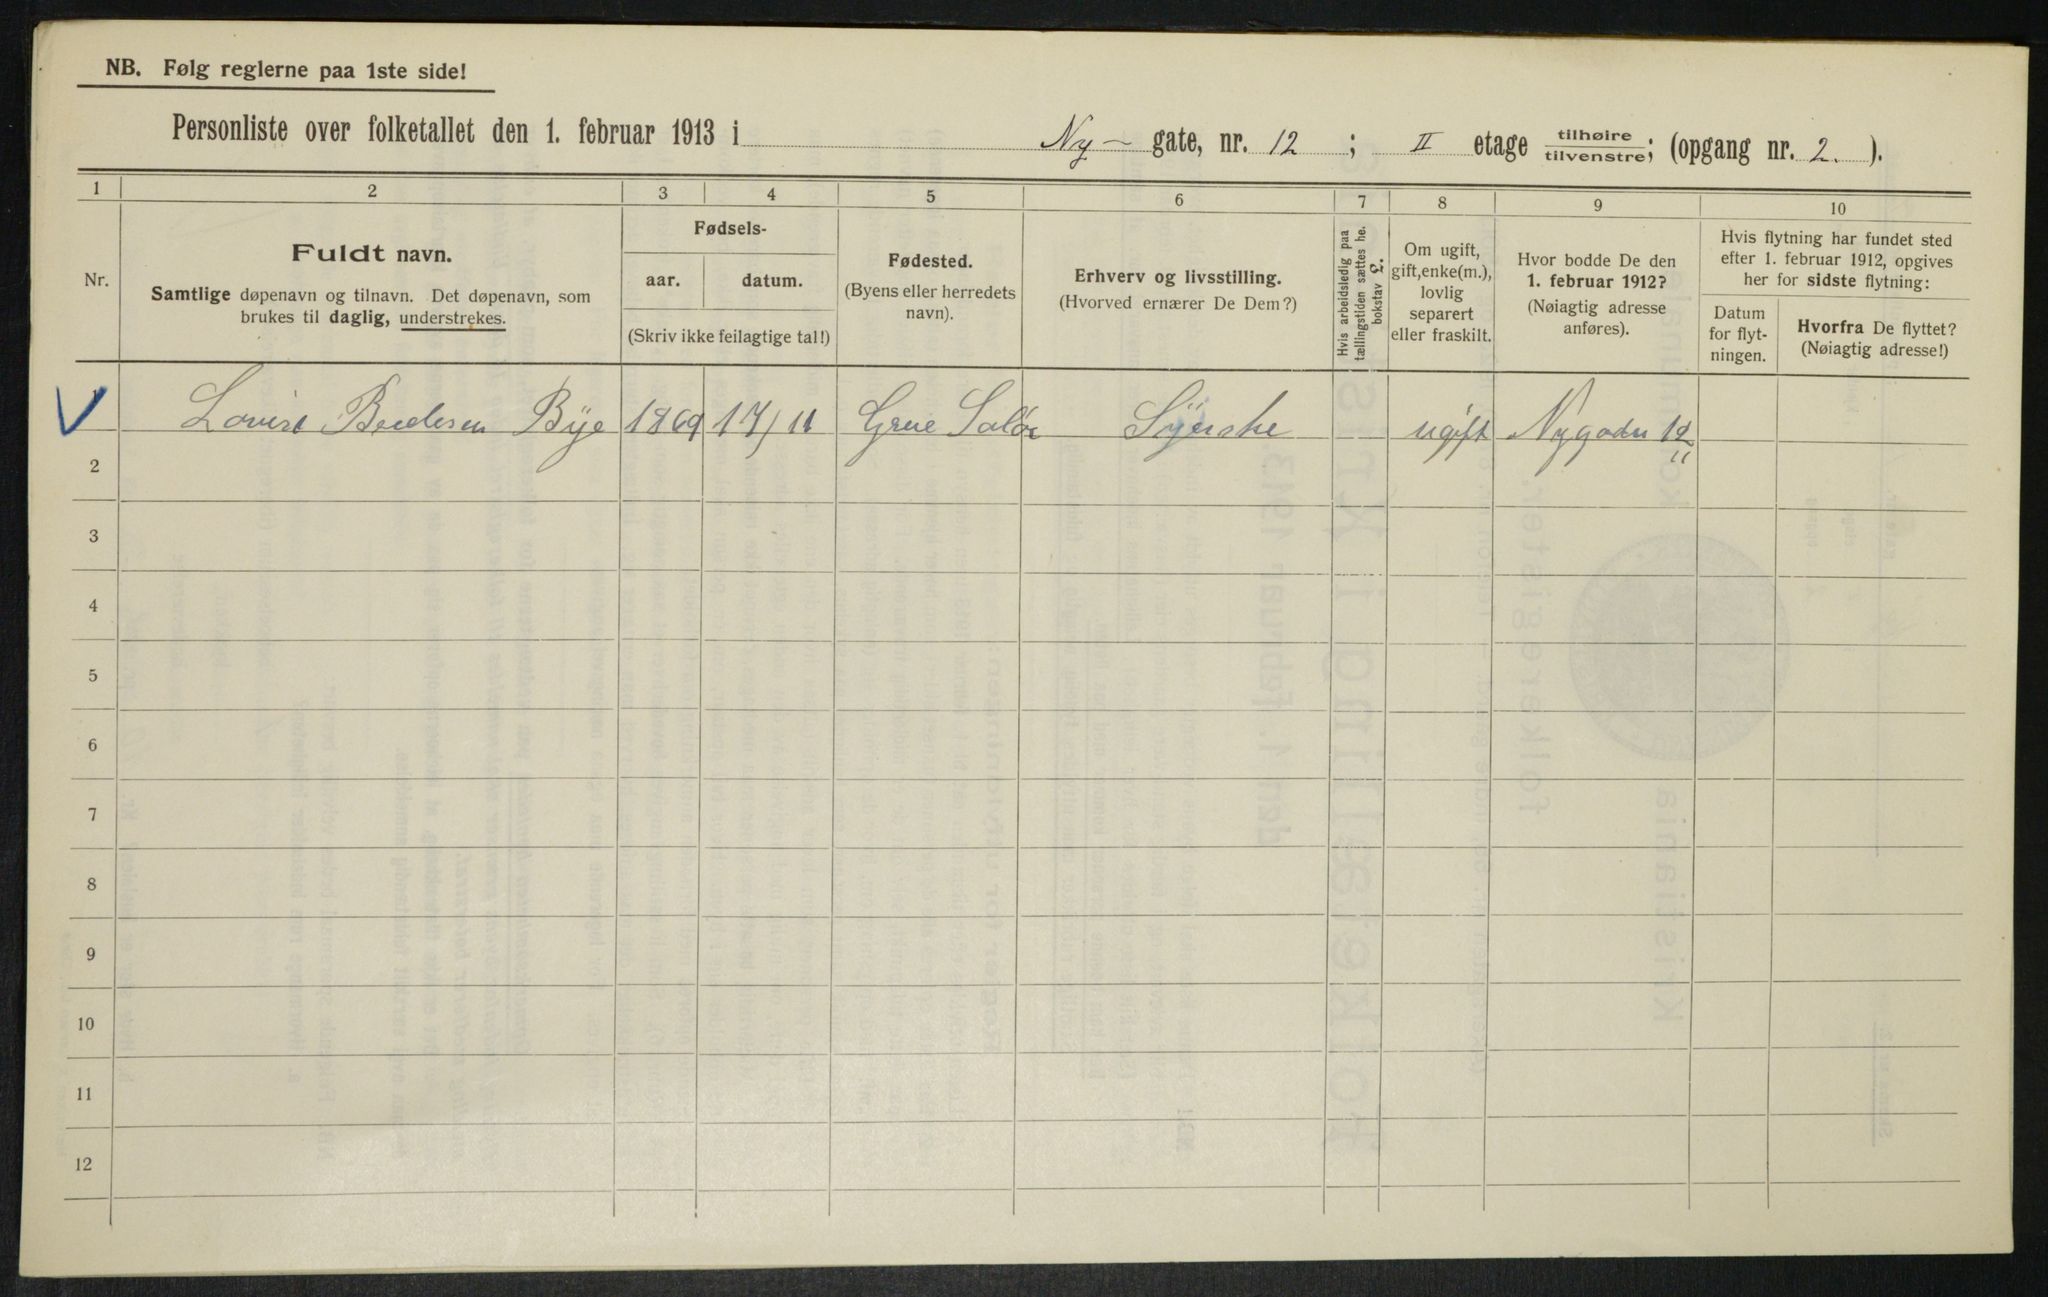 NB. Følg reglerne paa 1ste side!
Personliste over folketallet den 1. februar 1913 i Ny- gate, nr. 12 ; II etage tilhøire/tilvenstre; (opgang nr. 2. ).
1 2 3 4 5 6 7 8 9 10
Nr.
Fuldt navn.
Samtlige døpenavn og tilnavn. Det døpenavn, som
brukes til daglig, understrekes.
Fødsels-
aar. datum.
(Skriv ikke feilagtige tal!)
Fødested.
(Byens eller herredets
navn).
Erhverv og livsstilling.
(Hvorved ernærer De Dem?)
Hvis arbeidsledig paa
tællingstiden sættes he.
bokstav L.
Om ugift,
gift, enke(m.),
lovlig
separert
eller fraskilt.
Hvor bodde De den
1. februar 1912?
(Nøiagtig adresse
anføres).
Hvis flytning har fundet sted
efter 1. februar 1912, opgives
her for sidste flytning:
Datum
for flyt-
ningen.
Hvorfra De flyttet?
(Nøiagtig adresse!)
1 Lovise Bye 1869 17/11 Grue Solør Syerske ugift Nygaden 12 II
2
3
4
5
6
7
8
9
10
11
12